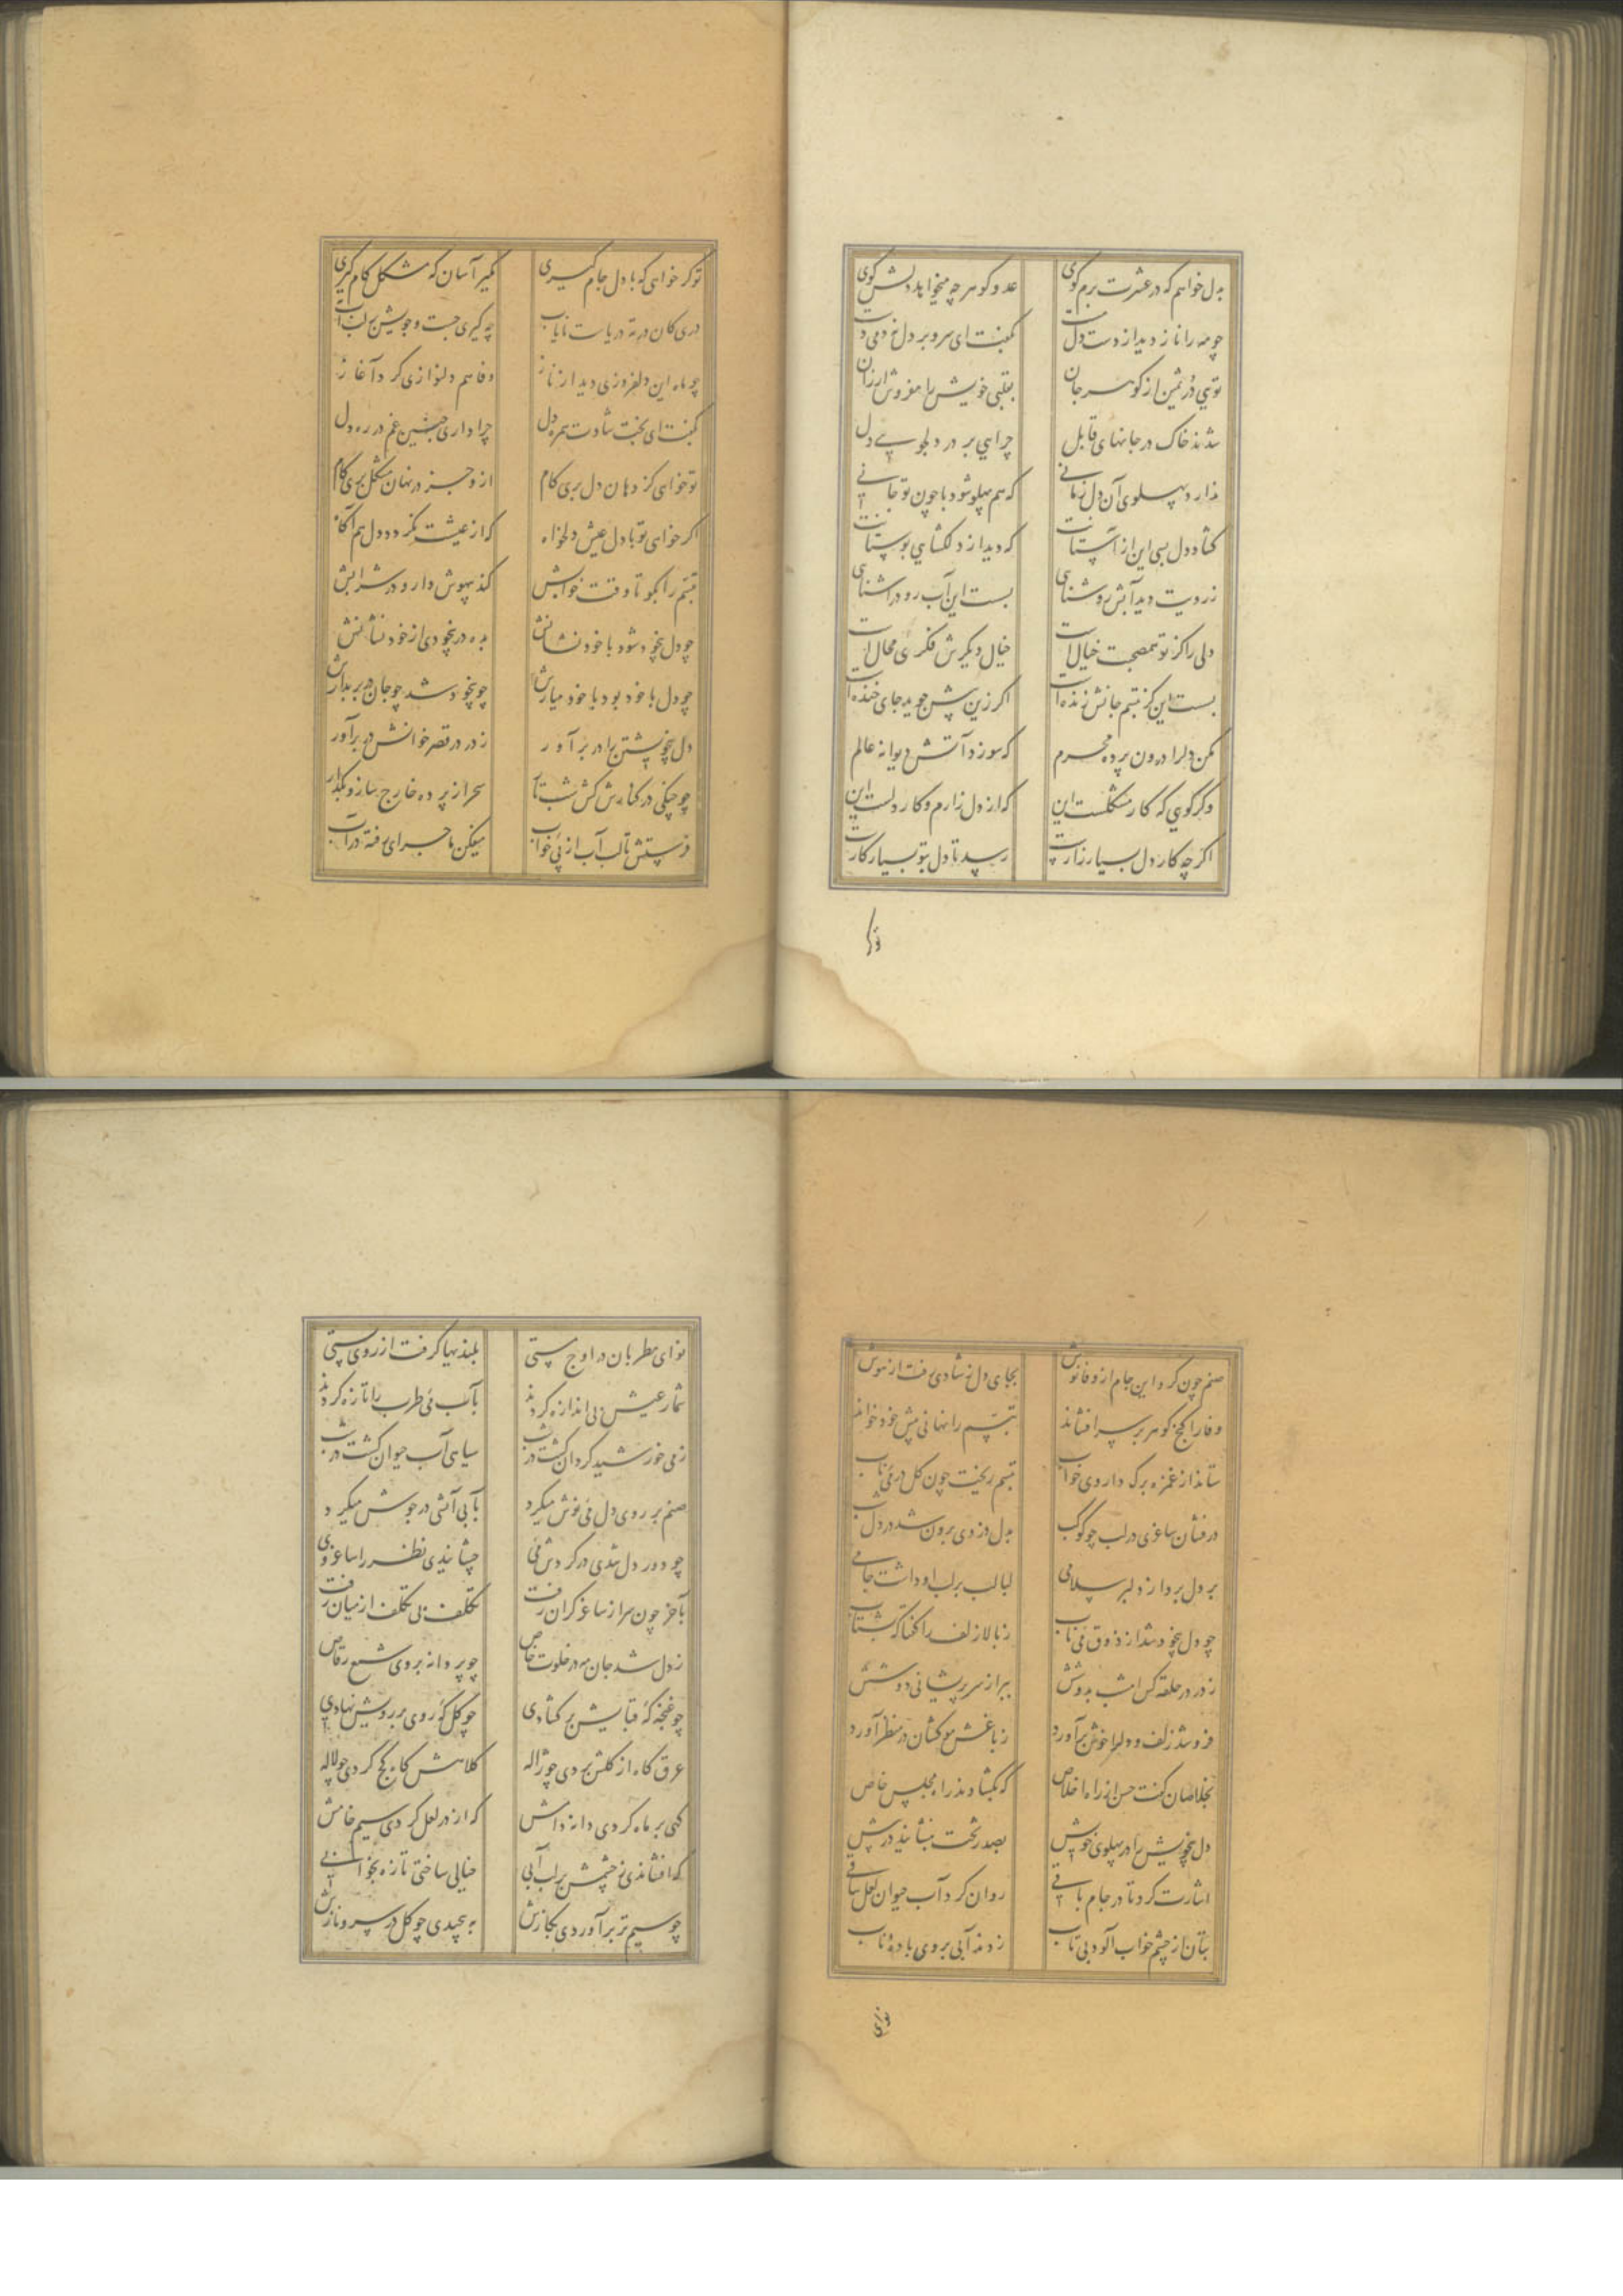 بدل خواهم که در عشرت برم گوی عدو گو هر چه میخواهد پسش گوی
چو مه را ناز دید از دست دل بگفت ای سرو بر دل
تویی در ثمین از گوهر جان بقلبی خویش را مفروش ارزان
شدند خاک در جانهای قابل چرایی بر در دلجویی دل
ندارد پهلوی آن دل زمانی که هم پهلو شود با چون تو جانی
گشاد دل بسی این از آستانت که دیدار دلگشای بوستانت
ز رویت دید آبش روشنایی بست این آب رو در آشنایی
دلی را کز تو همصحبت خیال است خیال دیگرش فکری محال است
بست این کز تبسم جانش زنده است اگر زین بیش جوید جای خنده است
مکن دل را درون پرده محرم که سوزد آتش دیوانه عالم
وگر گویی که کار مشکلست این که از دل زارم و کار دلست این
اگر چه کار دل بسیار زارست رسید تا دل بتو بسیار کارست
تو گر خواهی که با دل جام گیری مگیر آسان که مشکل کام گیری
دری کان در ته دریاست نایاب چه گیری جست و جویش بر لب آب
چو ماه این دلفروزی دید از ناز وفا هم دلنوازی کرد آغاز
بگفت ای بخت شادت همره دل چرا داری چنین غم در ره دل
تو خواهی کز دهان دل بری کام ازو جز در نهان مشکل بری کام
اگر خواهی تو با دل عیش دلخواه که از عیشت نگردد دل هم آگاه
تبسم را بگو تا وقت خوابش کند بیهوش دارو در شرابش
چو دل بیخود شود با خود نشانش بده در بیخودی از خود نشانش
چو دل با خود بود با خود میارش چو بیخود شد چو جان در بر بدارش
دل بیخویشتن را در بر آور ز در در قصر خوانش در بر آور
چو چنگی در کنارش کش شب تار سحر از پرده خارج ساز و بگذار
فرستش تا لب آب از پی خواب میفکن ماجرای رفته در آب
صنم چون کرد این جام از وفا نوش بجای دل ز شادی رفت از هوش
وفا را گنج گوهر بر سر افشاند تبسم را نهانی پیش خود خواند
ستاند از غمزه برگ داروی خواب تبسم ریخت چون گل در می ناب
درفشان ساغری در لب چو کوکب بدل دزدی برون شد در دل شب
بر دل برد از دلبر سلامی لبالب بر لب او داشت جامی
چو دل بیخود شد از ذوق می ناب ز بالا زلف را گفتا که بشتاب
ز در در حلقه کش امشب بدوشش ببر از سر پریشانی دوشش
فرو شد زلف و دل را خوش برآورد ز باغش موکشان در منظر آورد
بخلاصان گفت حسن از راه اخلاص که بگشادند راه مجلس خاص
دل بیخویش را در پهلوی خویش بصدر تخت بنشانید در پیش
اشارت کرد تا در جام باقی روان کرد آب حیوان لعل ساقی
بتان از چشم خواب آلود بی تاب زدند آبی بروی باده ناب
نوای مطربان در اوج مستی بلندیها گرفت از روی پستی
شمار عیش بی اندازه کردند بآب می طرب را تازه کردند
ز می خورشید گردان گشت در شب سیاهی آب حیوان گشت در شب
صنم بر روی دل می نوش میکرد بآبی آتشی در جوش میکرد
چو دور دل شدی در گردش می چشانیدی نظر را ساغر وی
بآخر چون سر از ساغر گران رفت تکلف بی تکلف از میان رفت
ز دل شد جان مه در خلوت خاص چو پروانه بروی شمع رقاص
چو غنچه گه قبایش بر گشادی چو گل گه روی بر رویش نهادی
عرق گاه از گلش بردی چو ژاله کلاهش گاه کج کردی چو لاله
گهی بر ماه کردی دانه دامش که از در لعل کردی سیم خامش
گه افشاندی ز چشمش بر لب آبی خیالی ساختی تازه بخوابی
چو سیم تر برآوردی بگازش بپیچیدی چو گل در سرو نازش